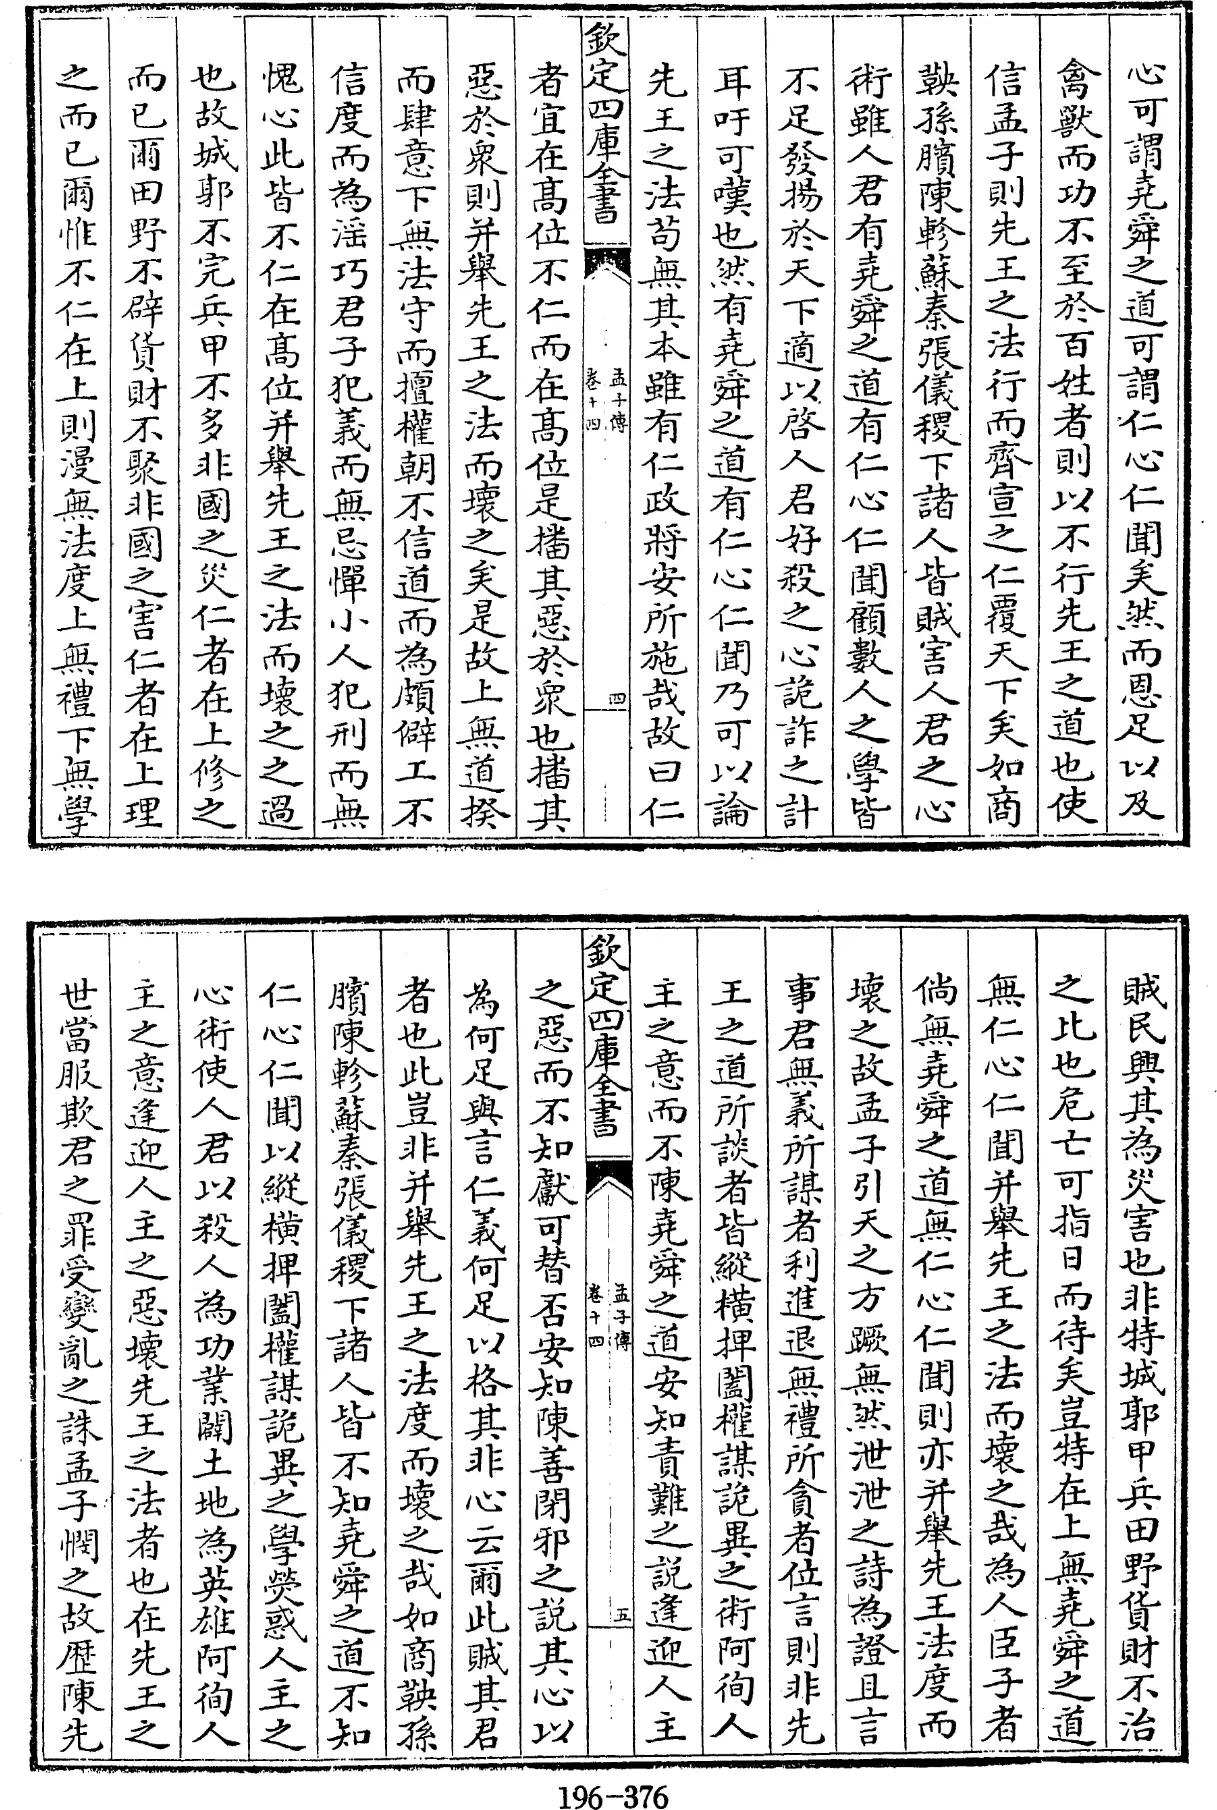 心可謂堯舜之道可謂仁心仁聞矣然而恩足以及
禽獸而功不至於百姓者則以不行先王之道也使
信孟子則先王之法行而齊宣之仁覆天下矣如商
鞅孫臏陳軫蘇秦張儀稷下諸人皆賊害人君之心
術雖人君有堯舜之道有仁心仁聞顧數人之學皆
不足發揚於天下適以啓人君好殺之心詭詐之計
耳吁可嘆也然有堯舜之道有仁心仁聞乃可以論
先王之法苟無其本雖有仁政將安所施哉故曰仁
欽定四庫全書
孟子傳
卷十四
四
者宜在髙位不仁而在髙位是播其惡於衆也播其
惡於衆則并舉先王之法而壞之矣是故上無道揆
而肆意下無法守而擅權朝不信道而為頗僻工不
信度而為滛巧君子犯義而無忌憚小人犯刑而無
愧心此皆不仁在髙位并舉先王之法而壞之之過
也故城郭不完兵甲不多非國之災仁者在上修之
而已爾田野不辟貨財不聚非國之害仁者在上理
之而已爾惟不仁在上則漫無法度上無禮下無學
賊民興其為災害也非特城郭甲兵田野貨財不治
之比也危亡可指日而待矣豈特在上無堯舜之道
無仁心仁聞并舉先王之法而壞之哉為人臣子者
倘無堯舜之道無仁心仁聞則亦并舉先王法度而
壞之故孟子引天之方蹶無然泄泄之詩為證且言
事君無義所謀者利進退無禮所貪者位言則非先
王之道所談者皆縱横捭闔權謀詭異之術阿徇人
主之意而不陳堯舜之道安知責難之説逢迎人主
欽定四庫全書
孟子傳
卷十四
五
之惡而不知獻可替否安知陳善閉邪之説其心以
為何足與言仁義何足以格其非心云爾此賊其君
者也此豈非并舉先王之法度而壞之哉如商鞅孫
臏陳軫蘇秦張儀稷下諸人皆不知堯舜之道不知
仁心仁聞以縱横捭闔權謀詭異之學熒惑人主之
心術使人君以殺人為功業闢土地為英雄阿徇人
主之意逢迎人主之惡壞先王之法者也在先王之
世當服欺君之罪受變亂之誅孟子憫之故歴陳先
196-376